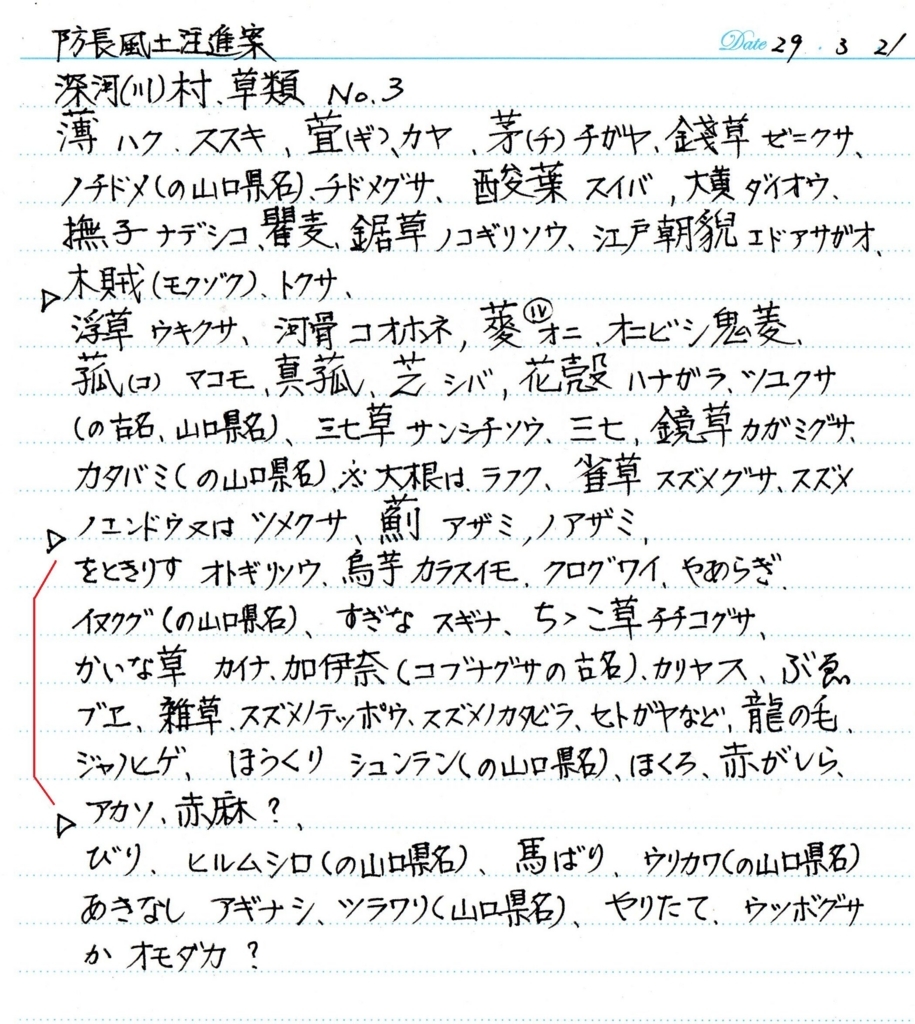 防長風土注進案 Date 29. 3 21
深河(川)村、草類 No.3
薄 ハク、ススキ、萱(ギ)、カヤ、茅(チ)チガヤ、銭草 ゼニクサ、
ノチドメ(の山口県名)、チドメグサ、酸葉 スイバ、大黄 ダイオウ、
撫子 ナデシコ、瞿麦、鋸草 ノコギリソウ、江戸朝貌 エドアサガオ、
▷木賊(モクゾク)、トクサ、
浮草 ウキクサ、河骨 コオホネ、蔆 オニ、オニビシ 鬼菱、
菰(コ) マコモ、真菰、芝 シバ、花殻 ハナガラ、ツユクサ
(の古名、山口県名)、三七草 サンシチソウ、三七、鏡草 カガミグサ、
カタバミ(の山口県名)、※大根は、ラフク、雀草 スズメグサ、スズメ
▷ノエンドウ又は ツメクサ、薊 アザミ、ノアザミ、
をときりす オトギリソウ、烏芋 カラスイモ、クログワイ、やあらぎ
イヌクグ(の山口県名)、すぎな スギナ、ちゝこ草 チチコグサ、
かいな草 カイナ、加伊奈(コブナグサの古名)、カリヤス、ぶゑ
ブエ、雑草、スズメノテッポウ、スズメノカタビラ、セトガヤなど、龍の毛、
ジャノヒゲ、ほうくり シュンラン(の山口県名)、ほくろ、赤がしら、
▷アカソ、赤麻?、
びり、ヒルムシロ(の山口県名)、馬ばり、ウリカワ(の山口県名)
あきなし アギナシ、ツラワリ(山口県名)、やりたて、ウツボグサ
か オモダカ?